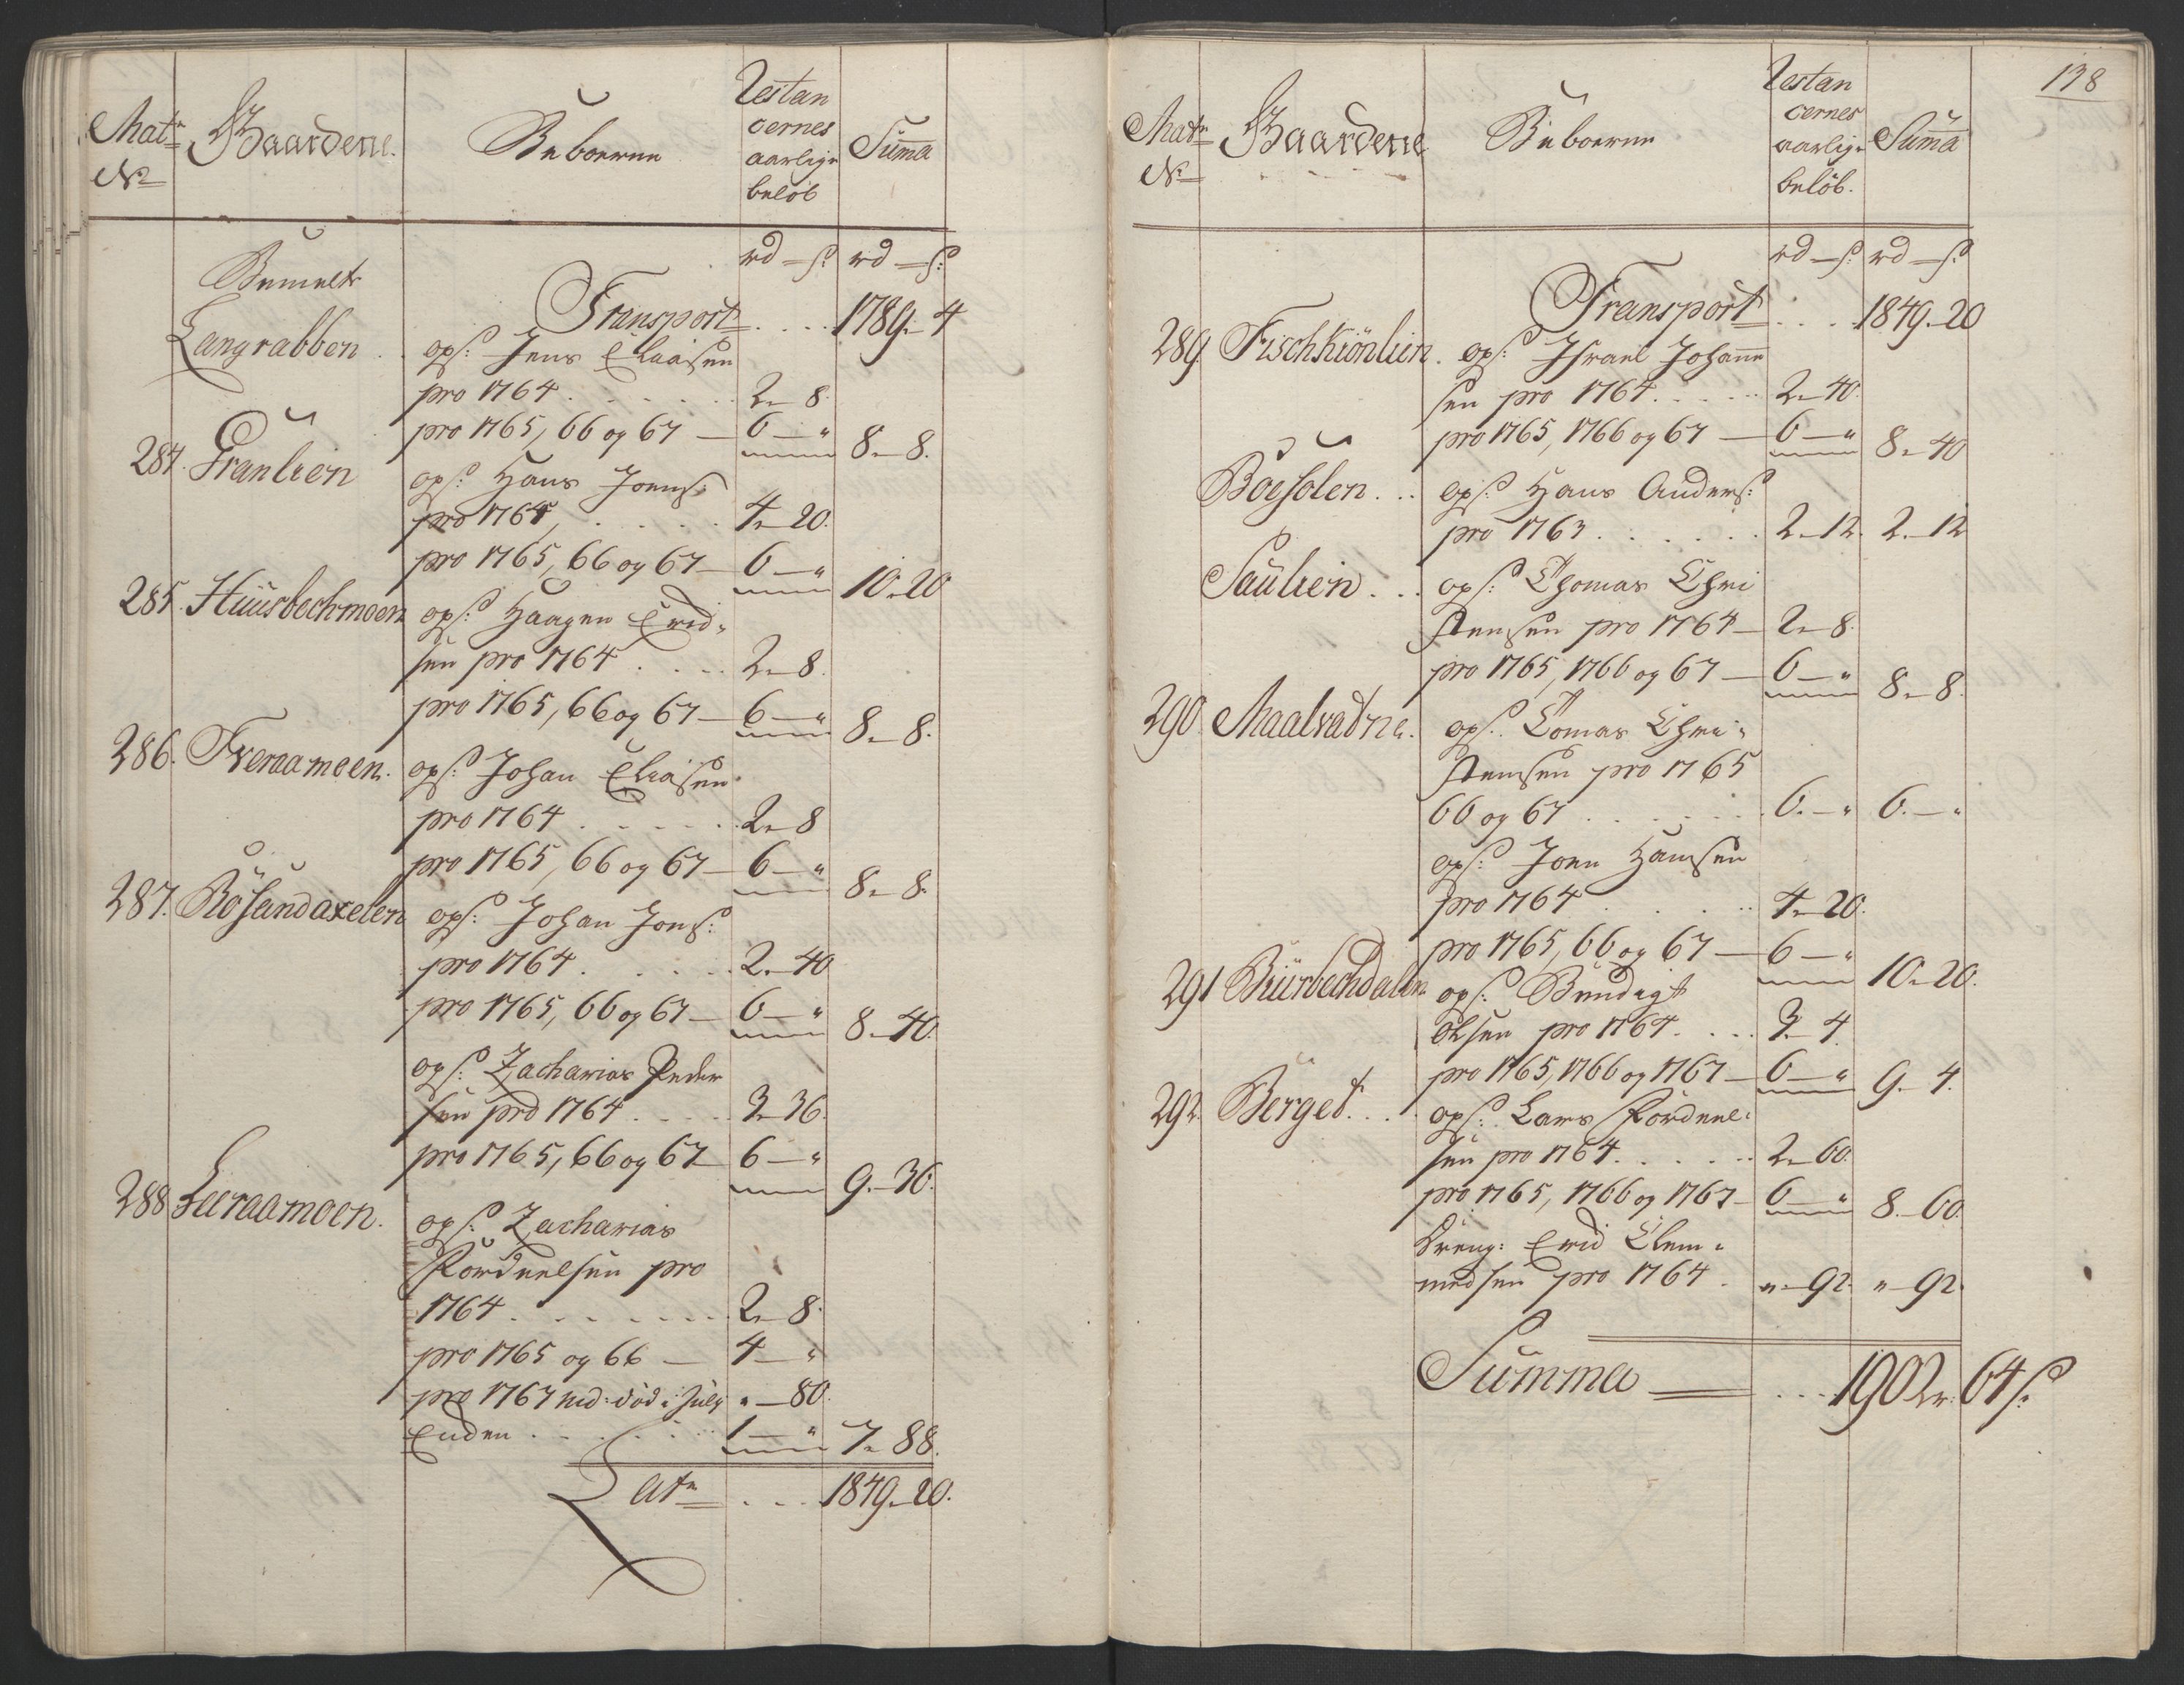 Matr No Gaardene. Beboerne Restancernes aarlige beløb Summa
rd — s: rd — s:
Bemelte
Transport . . . . 1789. 4
Langrabben . . ops: Jens Eliasen
pro 1764 . . . . . . 2. 8.
pro 1765, 66 og 67 — 6 — " 8. 8.
284. Granlien ops: Hans Joens:
pro 1764, . . . . . 4. 20.
pro 1765, 66 og 67 — 6 — " 10. 20
285. Huusbechmoen ops: Haagen Erich-
sen pro 1764 . . . . 2. 8.
pro 1765, 66 og 67 — 6 — " 8. 8.
286. Tveraamoen. ops: Johan Eliasen
pro 1764 . . . . . . 2. 8
pro 1765, 66 og 67 — 6 — " 8. 8.
287. Røsandaxelen ops: Johan Jons:
pro 1764 . . . . . 2. 40
pro 1765, 66 og 67 — 6 — " 8. 40.
ops: Zacharias Peder
sen pro 1764 . . . . 3. 36.
pro 1765, 66 og 67 6 — " 9. 36.
288 Leeraamoen. ops: Zacharias
Fordeelsen pro
1764 . . . . . . . 2. 8.
pro 1765 og 66 — 4 — "
pro 1767 ned: død i July " — 80.
Enken . . . . . . 1 — " 7. 88.
Latr . . . 1849. 20.
138
Matr No Gaardene Beboerne Restancernes aarlige beløb. Summa
rd — s: rd — s:
Transport . . . . 1849. 20
289. Fischkiønlien. ops: Israel Johanne
sen pro 1764 . . . . . 2. 40.
pro 1765, 1766 og 67 — 6 — " 8. 40
Boesolen . . . ops: Hans Anders:
pro 1763 . . . . . . 2. 12. 2. 12
Saulien . . . ops: Thomas Chri
stensen pro 1764 — 2. 8.
pro 1765, 1766 og 67 — 6 — " 8. 8.
290. Maalvadne. ops: Tomas Chri-
stensen pro 1765
66 og 67 . . . . . . 6. — " 6. — "
ops: Joen Hansen
pro 1764 . . . . . 4. 20.
pro 1765, 66 og 67 — 6 — " 10. 20.
291 Buurbechdalen ops: Bendigt
Olsen pro 1764 . . . . 3. 4.
pro 1765, 1766 og 1767 — 6 — " 9. 4.
292. Berget . . . . ops: Lars Fordeel-
sen pro 1764 . . . . . . 2. 60.
pro 1765, 1766 og 1767 — 6 — " 8. 60.
Dreng: Erich Clem-
medsen pro 1764 . " — 92. " — 92.
Summa — . . . 1902 r. 64 s: